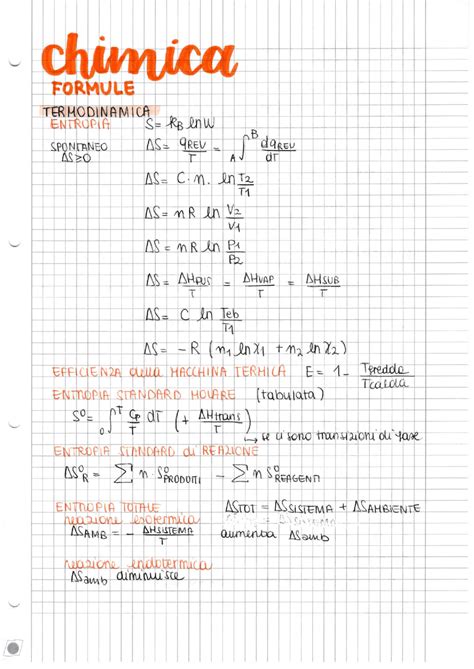 chimica
FORMULE
TERMODINAMICA
ENTROPIA S = kB ln W
SPONTANEO ΔS ≥ 0 ΔS = qREV/T = A∫B dqREV/dT
ΔS = C · n · ln T2/T1
ΔS = n R ln V2/V1
ΔS = n R ln P1/P2
ΔS = ΔHFUS/T = ΔHVAP/T = ΔHSUB/T
ΔS = C ln Teb/T1
ΔS = - R (n1 ln x1 + n2 ln x2)
EFFICIENZA della MACCHINA TERMICA E = 1 - Tfredda/Tcalda
ENTROPIA STANDARD MOLARE (tabulata)
S° = 0∫T Cp/T dT (+ ΔHtrans/T)
→ se ci sono transizioni di fase
ENTROPIA STANDARD di REAZIONE
ΔS°R = Σ n · S°PRODOTTI - Σ n S°REAGENTI
ENTROPIA TOTALE ΔSTOT = ΔSSISTEMA + ΔSAMBIENTE
reazione esotermica
ΔSAMB = - ΔHSISTEMA/T aumenta ΔSamb
reazione endotermica
ΔSamb diminuisce